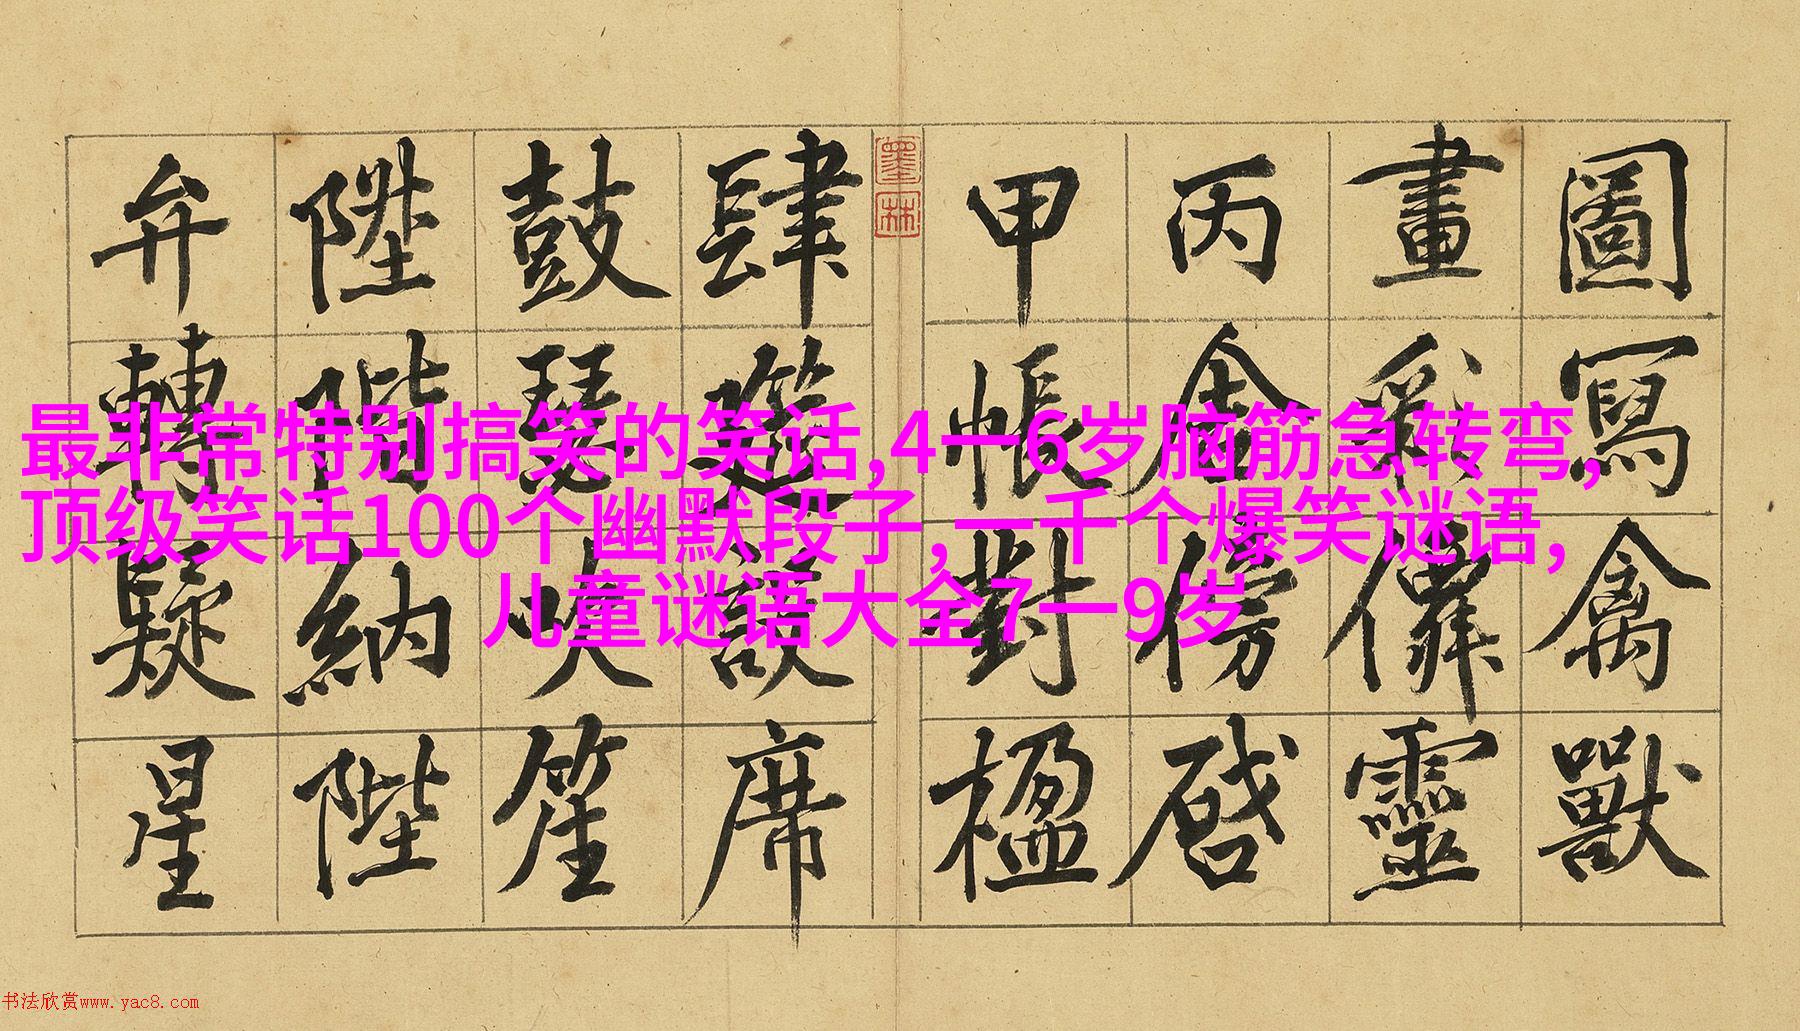 圖寫禽獸
畫彩僊靈
丙舍傍啓
甲帳對楹
墨林
肆筵設席
鼓瑟吹笙
陞階納陛
弁轉疑星
最非常特别搞笑的笑话,4一6岁脑筋急转弯,
顶级笑话100个幽默段子,一千个爆笑谜语,
儿童谜语大全7一9岁
书法欣赏www.yac8.com